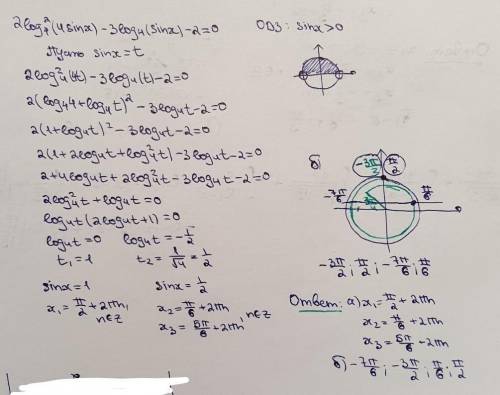 2log₄²(4sinx)-3log₄(sinx)-2=0
Пусть sinx=t
2log₄²(4t)-3log₄(t)-2=0
2(log₄4+log₄t)²-3log₄t-2=0
2(1+log₄t)²-3log₄t-2=0
2(1+2log₄t+log₄²t)-3log₄t-2=0
2+4log₄t+2log₄²t-3log₄t-2=0
2log₄²t+log₄t=0
log₄t(2log₄t+1)=0
log₄t=0 log₄t=-1/2
t₁=1 t₂=1/√4=1/2
sinx=1 sinx=1/2
x₁=π/2+2πn, n∈Z x₂=π/6+2πn
x₃=5π/6+2πn, n∈Z
ОДЗ: sinx>0
б)
-3π/2 π/2
-7π/6 π/6
-3π/2; π/2; -7π/6; π/6
Ответ: а) x₁=π/2+2πn
x₂=π/6+2πn
x₃=5π/6+2πn
б) -7π/6; -3π/2; π/6; π/2